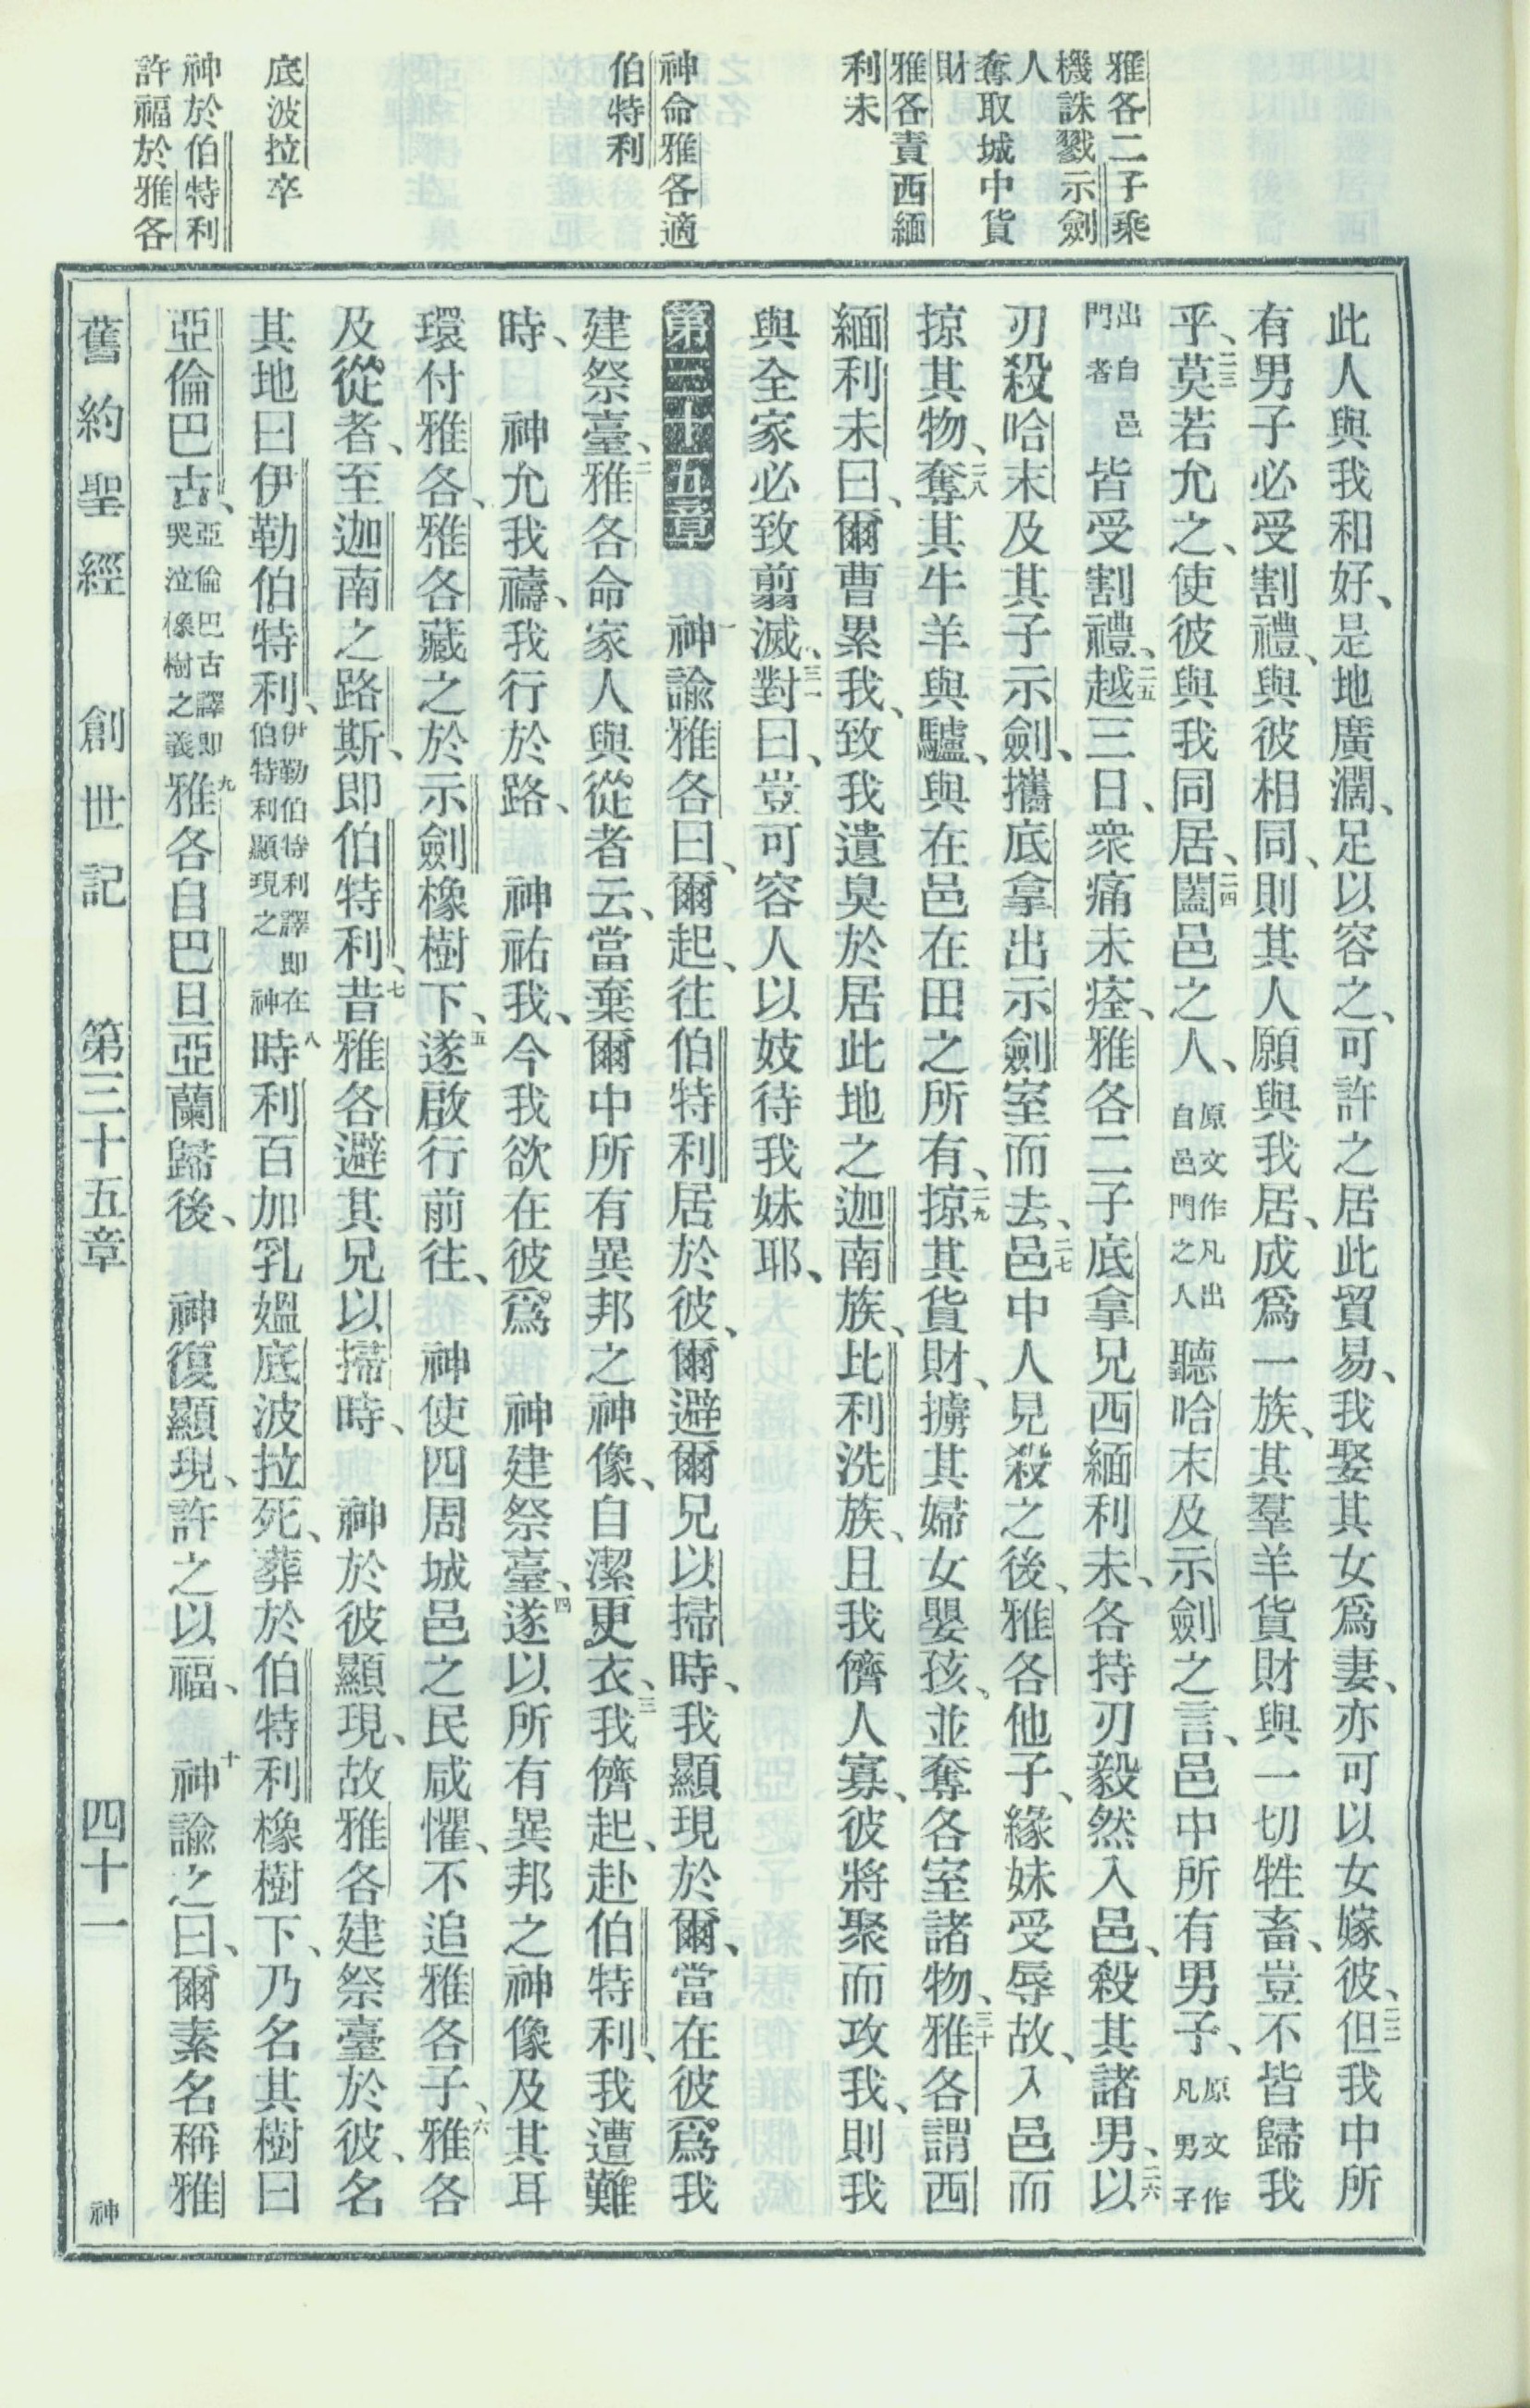 雅各二子乘
機誅戮示劍
人
奪取城中貨
財
雅各責西緬
利未
神命雅各適
伯特利
底波拉卒
神於伯特利
許福於雅各
此人與我和好、是地廣濶、足以容之、可許之居此貿易、我娶其女爲妻、亦可以女嫁彼、二二但我中所
有男子必受割禮、與彼相同、則其人願與我居、成爲一族、其羣羊貨財與一切牲畜、豈不皆歸我
乎、二三莫若允之、使彼與我同居、二四闔邑之人、原文作凡出自邑門之人聽哈末及示劍之言、邑中所有男子、原文作凡男子
出自邑門者皆受割禮、二五越三日、衆痛未痊、雅各二子底拿兄西緬利未、各持刃毅然入邑、殺其諸男、二六以
刃殺哈末及其子示劍、攜底拿出示劍室而去、二七邑中人見殺之後、雅各他子、緣妹受辱故、入邑而
掠其物、二八奪其牛羊與驢、與在邑在田之所有、二九掠其貨財、擄其婦女嬰孩、並奪各室諸物、三十雅各謂西
緬利未曰、爾曹累我、致我遺臭於居此地之迦南族、比利洗族、且我儕人寡、彼將聚而攻我、則我
與全家必致翦滅、三一對曰、豈可容人以妓待我妹耶、
第三十五章 一神諭雅各曰、爾起、往伯特利居於彼、爾避爾兄以掃時、我顯現於爾、當在彼爲我
建祭臺、二雅各命家人與從者云、當棄爾中所有異邦之神像、自潔更衣、三我儕起、赴伯特利、我遭難
時、神允我禱、我行於路、神祐我、今我欲在彼爲 神建祭臺、四遂以所有異邦之神像及其耳
環付雅各、雅各藏之於示劍橡樹下、五遂啟行前往、神使四周城邑之民咸懼、不追雅各子、六雅各
及從者、至迦南之路斯、即伯特利、七昔雅各避其兄以掃時、神於彼顯現、故雅各建祭臺於彼、名
其地曰伊勒伯特利、伊勒伯特利譯即在神伯特利顯現之八時利百加乳媼底波拉死、葬於伯特利橡樹下、乃名其樹曰
亞倫巴古、亞倫巴古譯即哭泣橡樹之義九雅各自巴旦亞蘭歸後、神復顯現、許之以福、十神諭之曰、爾素名稱雅
舊約聖經 創世記 第三十五章 四十一 神